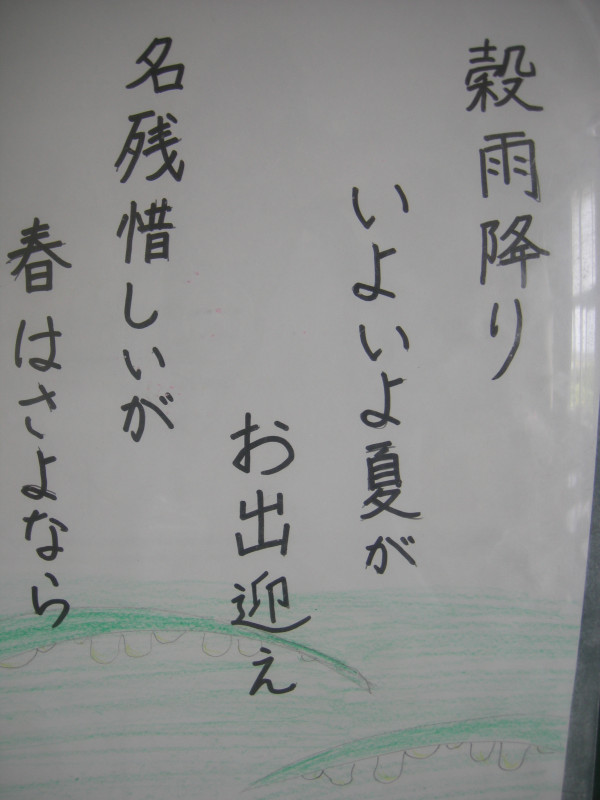 穀雨降り
いよいよ夏が
お出迎え
名残惜しいが
春はさよなら